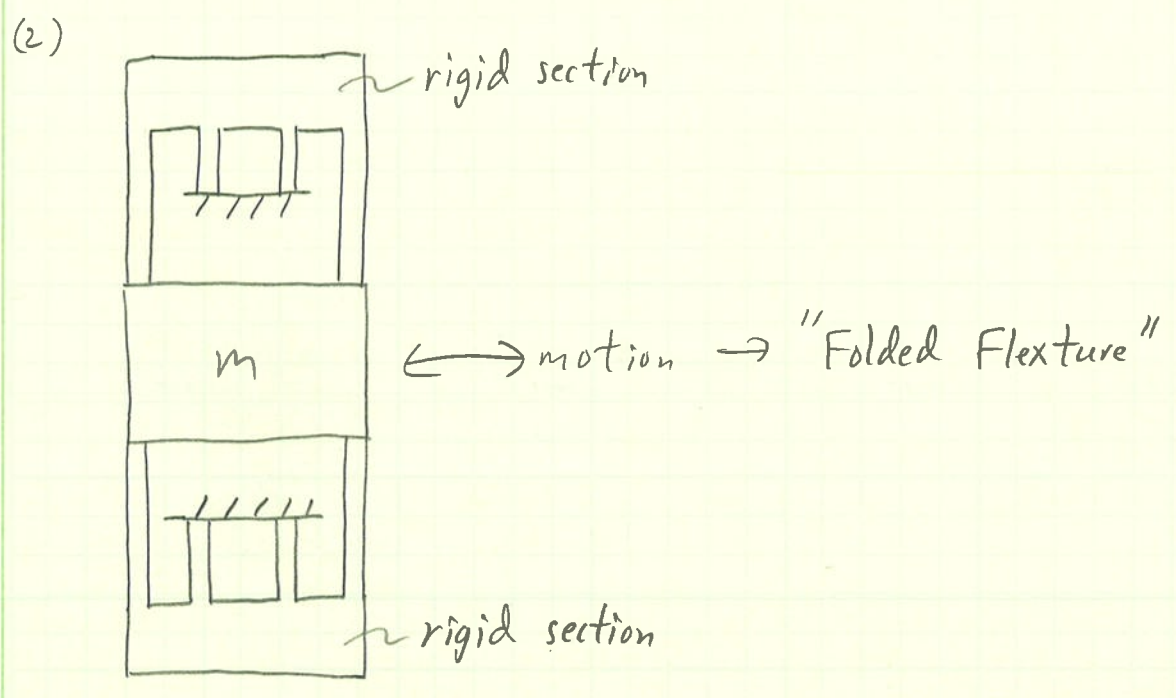 (2)
rigid section
m ↔ motion → "Folded Flexture"
rigid section